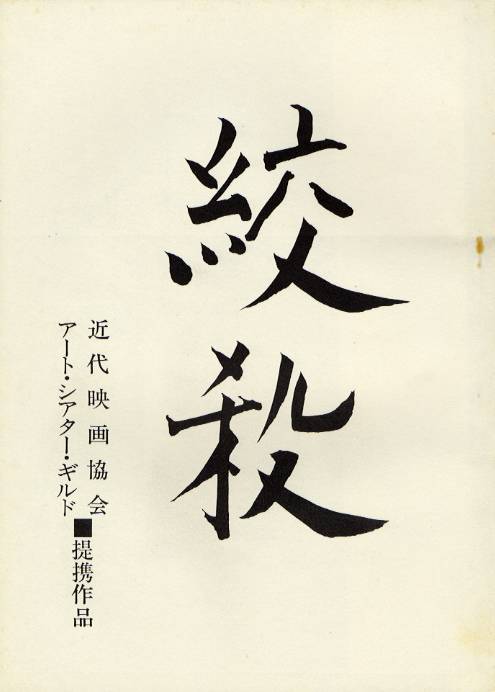 絞殺
近代映画協会
アート・シアター・ギルド
■提携作品